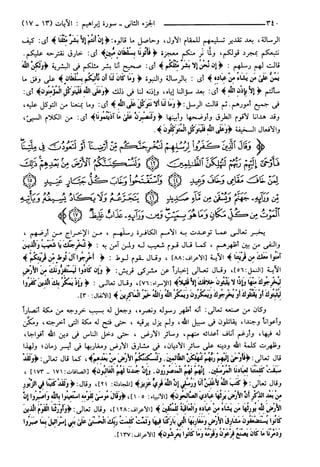 ٣٤٠ ــــ الجزء الثاني - سورة إبراهيم: الآيات (١٣ - ١٧)
الرسالة، بعد تقدير تسليمهم للمقام الأول، وحاصل ما قالوه: ﴿إِنْ أَنتُمْ إِلَّا بَشَرٌ مِّثْلُنَا﴾ أي: كيف
نتبعكم بمجرد قولكم، ولما نر منكم معجزة ﴿فَأْتُونَا بِسُلْطَانٍ مُّبِينٍ﴾ أي: خارق نقترحه عليكم.
قالت لهم رسلهم: ﴿إِن نَّحْنُ إِلَّا بَشَرٌ مِّثْلُكُمْ﴾ أي: صحيح أنا بشر مثلكم في البشرية ﴿وَلَكِنَّ اللَّهَ
يَمُنُّ عَلَى مَن يَشَاءُ مِنْ عِبَادِهِ﴾ أي: بالرسالة والنبوة ﴿وَمَا كَانَ لَنَا أَن نَّأْتِيَكُم بِسُلْطَانٍ﴾ على وفق ما
سألتم ﴿إِلَّا بِإِذْنِ اللَّهِ﴾ أي: بعد سؤالنا إياه، وإذنه لنا في ذلك ﴿وَعَلَى اللَّهِ فَلْيَتَوَكَّلِ الْمُؤْمِنُونَ﴾ أي:
في جميع أمورهم. ثم قالت الرسل: ﴿وَمَا لَنَا أَلَّا نَتَوَكَّلَ عَلَى اللَّهِ﴾ أي: وما يمنعنا من التوكل عليه،
وقد هدانا لأقوم الطرق وأوضحها وأبينها ﴿وَلَنَصْبِرَنَّ عَلَى مَا آذَيْتُمُونَا﴾ أي: من الكلام السيئ،
والأفعال السخيفة ﴿وَعَلَى اللَّهِ فَلْيَتَوَكَّلِ الْمُتَوَكِّلُونَ﴾.
وَقَالَ الَّذِينَ كَفَرُوا لِرُسُلِهِمْ لَنُخْرِجَنَّكُم مِّنْ أَرْضِنَا أَوْ لَتَعُودُنَّ فِي مِلَّتِنَا
فَأَوْحَى إِلَيْهِمْ رَبُّهُمْ لَنُهْلِكَنَّ الظَّالِمِينَ ۝١٣ وَلَنُسْكِنَنَّكُمُ الْأَرْضَ مِن بَعْدِهِمْ ذَلِكَ
لِمَنْ خَافَ مَقَامِي وَخَافَ وَعِيدِ ۝١٤ وَاسْتَفْتَحُوا وَخَابَ كُلُّ جَبَّارٍ عَنِيدٍ ۝١٥
مِّن وَرَائِهِ جَهَنَّمُ وَيُسْقَى مِن مَّاءٍ صَدِيدٍ ۝١٦ يَتَجَرَّعُهُ وَلَا يَكَادُ يُسِيغُهُ وَيَأْتِيهِ
الْمَوْتُ مِن كُلِّ مَكَانٍ وَمَا هُوَ بِمَيِّتٍ وَمِن وَرَائِهِ عَذَابٌ غَلِيظٌ ۝١٧
يخبر تعالى عما توعدت به الأمم الكافرة رسلهم، من الإخراج من أرضهم،
والنفي من بين أظهرهم، كما قال قوم شعيب له ولمن آمن به: ﴿لَنُخْرِجَنَّكَ يَا شُعَيْبُ وَالَّذِينَ
آمَنُوا مَعَكَ مِن قَرْيَتِنَا﴾ الآية [الأعراف: ٨٨]، وقال قوم لوط: ﴿أَخْرِجُوا آلَ لُوطٍ مِّن قَرْيَتِكُمْ﴾
الآية [النمل: ٥٦]، وقال تعالى إخباراً عن مشركي قريش: ﴿وَإِن كَادُوا لَيَسْتَفِزُّونَكَ مِنَ الْأَرْضِ
لِيُخْرِجُوكَ مِنْهَا وَإِذًا لَّا يَلْبَثُونَ خِلَافَكَ إِلَّا قَلِيلًا﴾ [الإسراء: ٧٦]، وقال تعالى: ﴿وَإِذْ يَمْكُرُ بِكَ الَّذِينَ كَفَرُوا
لِيُثْبِتُوكَ أَوْ يَقْتُلُوكَ أَوْ يُخْرِجُوكَ وَيَمْكُرُونَ وَيَمْكُرُ اللَّهُ وَاللَّهُ خَيْرُ الْمَاكِرِينَ﴾ [الأنفال: ٣٠].
وكان من صنعه تعالى: أنه أظهر رسوله ونصره، وجعل له بسبب خروجه من مكة أنصاراً
وأعواناً وجنداً، يقاتلون في سبيل الله، ولم يزل يرقيه، حتى فتح له مكة التي أخرجته، ومكن
له فيها، وأرغم آناف أعدائه منهم، وسائر الأرض، حتى دخل الناس في دين الله أفواجاً،
وظهرت كلمة الله ودينه على سائر الأديان، في مشارق الأرض ومغاربها في أيسر زمان، ولهذا
قال تعالى: ﴿فَأَوْحَى إِلَيْهِمْ رَبُّهُمْ لَنُهْلِكَنَّ الظَّالِمِينَ. وَلَنُسْكِنَنَّكُمُ الْأَرْضَ مِن بَعْدِهِمْ﴾، كما قال تعالى: ﴿وَلَقَدْ
سَبَقَتْ كَلِمَتُنَا لِعِبَادِنَا الْمُرْسَلِينَ. إِنَّهُمْ لَهُمُ الْمَنصُورُونَ. وَإِنَّ جُندَنَا لَهُمُ الْغَالِبُونَ﴾ [الصافات: ١٧١ - ١٧٣]،
وقال تعالى: ﴿كَتَبَ اللَّهُ لَأَغْلِبَنَّ أَنَا وَرُسُلِي إِنَّ اللَّهَ قَوِيٌّ عَزِيزٌ﴾ [المجادلة: ٢١]، وقال: ﴿وَلَقَدْ كَتَبْنَا فِي الزَّبُورِ
مِن بَعْدِ الذِّكْرِ أَنَّ الْأَرْضَ يَرِثُهَا عِبَادِيَ الصَّالِحُونَ﴾ [الأنبياء: ١٠٥]، ﴿وَقَالَ مُوسَى لِقَوْمِهِ اسْتَعِينُوا بِاللَّهِ وَاصْبِرُوا إِنَّ
الْأَرْضَ لِلَّهِ يُورِثُهَا مَن يَشَاءُ مِنْ عِبَادِهِ وَالْعَاقِبَةُ لِلْمُتَّقِينَ﴾ [الأعراف: ١٢٨]، وقال تعالى: ﴿وَأَوْرَثْنَا الْقَوْمَ الَّذِينَ
كَانُوا يُسْتَضْعَفُونَ مَشَارِقَ الْأَرْضِ وَمَغَارِبَهَا الَّتِي بَارَكْنَا فِيهَا وَتَمَّتْ كَلِمَتُ رَبِّكَ الْحُسْنَى عَلَى بَنِي إِسْرَائِيلَ بِمَا صَبَرُوا
وَدَمَّرْنَا مَا كَانَ يَصْنَعُ فِرْعَوْنُ وَقَوْمُهُ وَمَا كَانُوا يَعْرِشُونَ﴾ [الأعراف: ١٣٧].